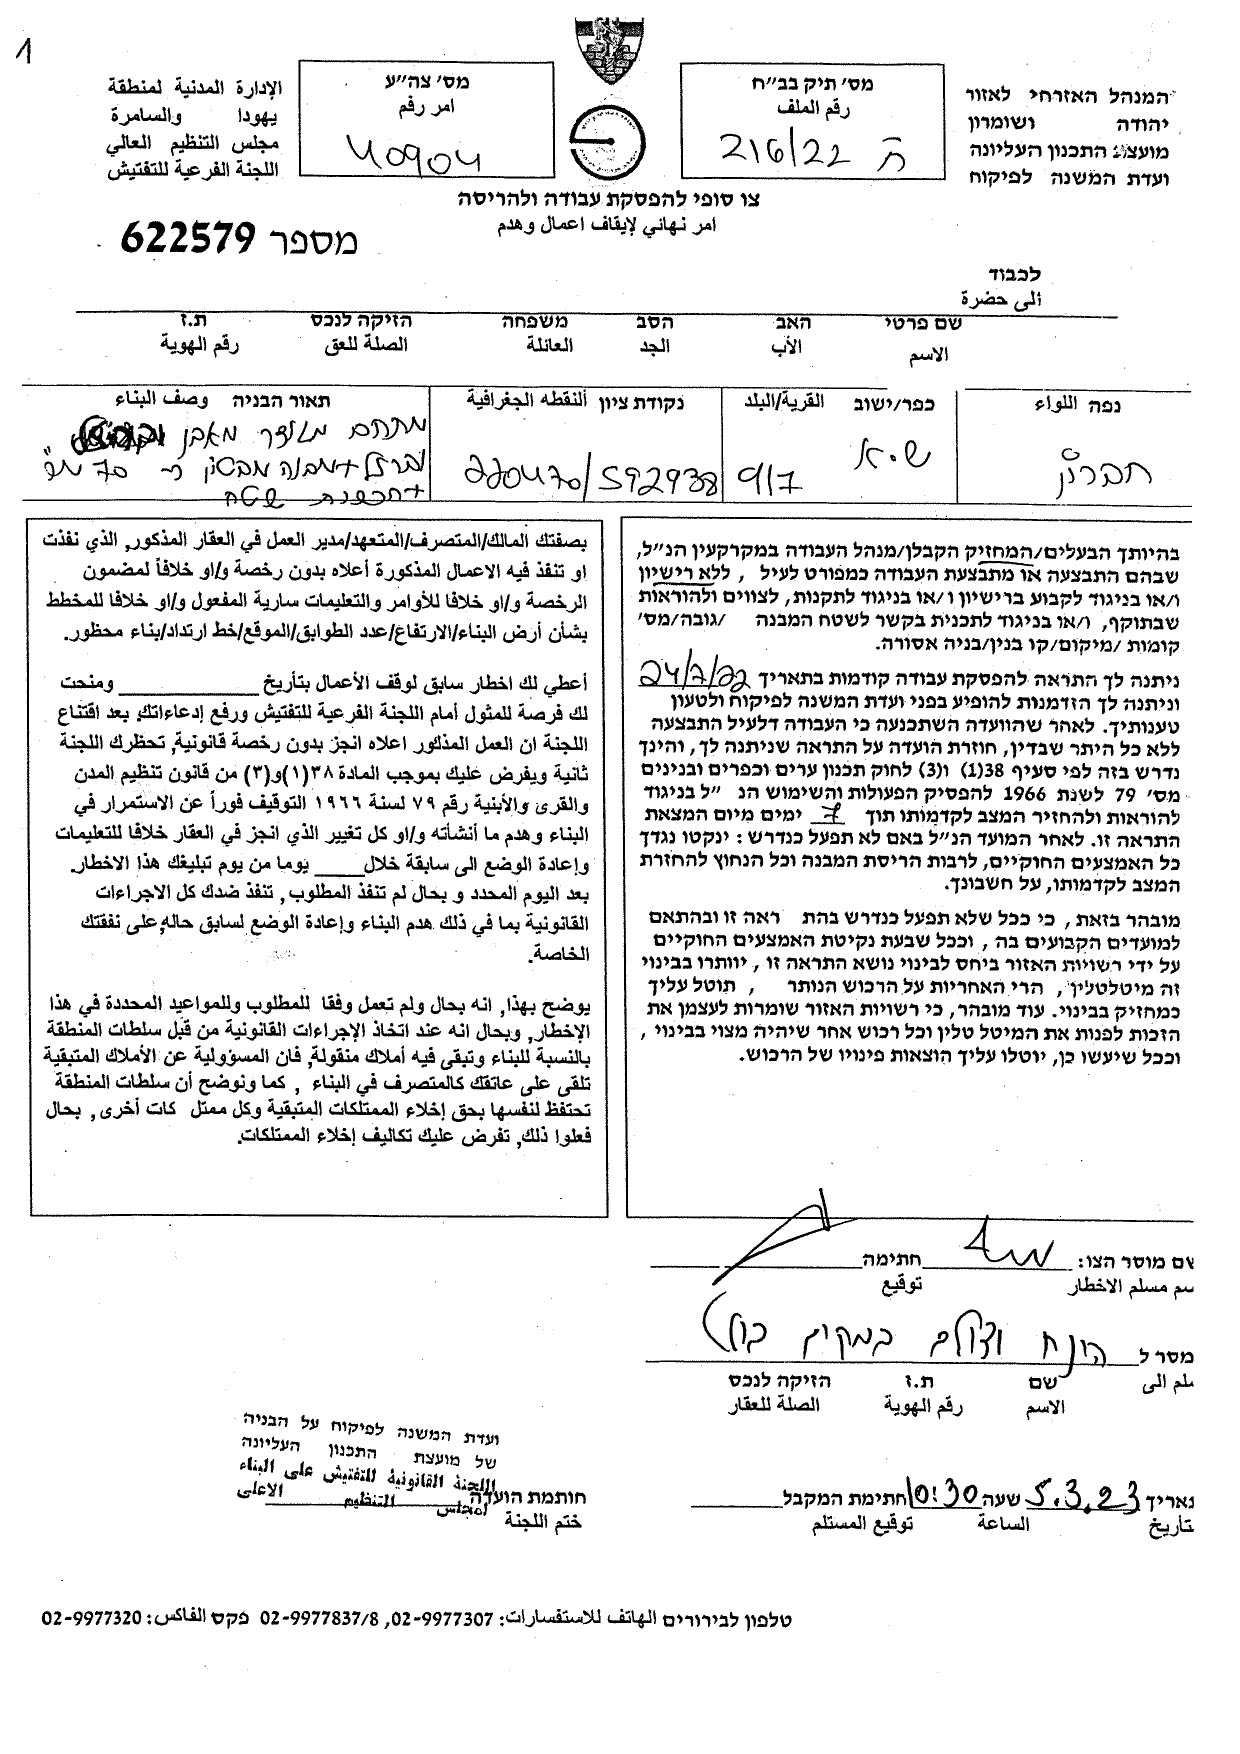 1
המנהל האזרחי לאזור
יהודה ושומרון
מועצת התכנון העליונה
ועדת המשנה לפיקוח
מס׳ תיק בב״ח
رقم الملف
ח 216/22
מס׳ צה״ע
امر رقم
40904
الإدارة المدنية لمنطقة
يهودا والسامرة
مجلس التنظيم العالي
اللجنة الفرعية للتفتيش
צו סופי להפסקת עבודה ולהריסה
امر نهائي لإيقاف اعمال وهدم
מספר 622579
לכבוד
الى حضرة
שם פרטי האב הסב משפחה הזיקה לנכס ת.ז
الاسم الأب الجد العائلة الصلة للعق رقم الهوية
נפה اللواء
כפר/ישוב القرية/البلد
נקודת ציון ألنقطه الجغرافية
תאור הבניה وصف البناء
חברון
ש.א 9/7
220470/592938
מתחם מגודר מאבן
וברזל + מבנה מבטון כ- 70 מ"ר
+ הכשרת שטח
בהיותך הבעלים/המחזיק הקבלן/מנהל העבודה במקרקעין הנ״ל,
שבהם התבצעה או מתבצעת העבודה כמפורט לעיל , ללא רישיון
ו/או בניגוד לקבוע ברישיון ו/או בניגוד לתקנות, לצווים ולהוראות
שבתוקף, ו/או בניגוד לתכנית בקשר לשטח המבנה /גובה/מס׳
קומות /מיקום/קו בנין/בניה אסורה.
ניתנה לך התראה להפסקת עבודה קודמות בתאריך 24/7/22
וניתנה לך הזדמנות להופיע בפני ועדת המשנה לפיקוח ולטעון
טענותיך. לאחר שהוועדה השתכנעה כי העבודה דלעיל התבצעה
ללא כל היתר שבדין, חוזרת הועדה על התראה שניתנה לך, והינך
נדרש בזה לפי סעיף 38(1) ו(3) לחוק תכנון ערים וכפרים ובנינים
מס׳ 79 לשנת 1966 להפסיק הפעולות והשימוש הנ ״ל בניגוד
להוראות ולהחזיר המצב לקדמותו תוך 7 ימים מיום המצאת
התראה זו. לאחר המועד הנ״ל באם לא תפעל כנדרש : ינקטו נגדך
כל האמצעים החוקיים, לרבות הריסת המבנה וכל הנחוץ להחזרת
המצב לקדמותו, על חשבונך.
מובהר בזאת , כי ככל שלא תפעל כנדרש בהת ראה זו ובהתאם
למועדים הקבועים בה , וככל שבעת נקיטת האמצעים החוקיים
על ידי רשויות האזור ביחס לבינוי נושא התראה זו , יוותרו בבינוי
זה מיטלטלין, הרי האחריות על הרכוש הנותר , תוטל עליך
כמחזיק בבינוי. עוד מובהר, כי רשויות האזור שומרות לעצמן את
הזכות לפנות את המיטל טלין וכל רכוש אחר שיהיה מצוי בבינוי ,
וככל שיעשו כן, יוטלו עליך הוצאות פינויו של הרכוש.
بصفتك المالك/المتصرف/المتعهد/مدير العمل في العقار المذكور, الذي نفذت
او تنفذ فيه الاعمال المذكورة أعلاه بدون رخصة و/او خلافاً لمضمون
الرخصة و/او خلافا للأوامر والتعليمات سارية المفعول و/او خلافا للمخطط
بشأن أرض البناء/الارتفاع/عدد الطوابق/الموقع/خط ارتداد/بناء محظور.
أعطي لك اخطار سابق لوقف الأعمال بتأريخ ومنحت
لك فرصة للمثول أمام اللجنة الفرعية للتفتيش ورفع إدعاءاتك. بعد اقتناع
اللجنة ان العمل المذكور اعلاه انجز بدون رخصة قانونية, تحظرك اللجنة
ثانية ويفرض عليك بموجب المادة ٣٨(١)و(٣) من قانون تنظيم المدن
والقرى والأبنية رقم ٧٩ لسنة ١٩٦٦ التوقيف فوراً عن الاستمرار في
البناء وهدم ما أنشأته و/او كل تغيير الذي انجز في العقار خلافا للتعليمات
وإعادة الوضع الى سابقة خلال يوما من يوم تبليغك هذا الاخطار.
بعد اليوم المحدد و بحال لم تنفذ المطلوب, تنفذ ضدك كل الاجراءات
القانونية بما في ذلك هدم البناء وإعادة الوضع لسابق حاله, على نفقتك
الخاصة.
يوضح بهذا, انه بحال ولم تعمل وفقا للمطلوب وللمواعيد المحددة في هذا
الإخطار, وبحال انه عند اتخاذ الإجراءات القانونية من قبل سلطات المنطقة
بالنسبة للبناء وتبقى فيه أملاك منقولة, فان المسؤولية عن الأملاك المتبقية
تلقى على عاتقك كالمتصرف في البناء , كما ونوضح أن سلطات المنطقة
تحتفظ لنفسها بحق إخلاء الممتلكات المتبقية وكل ممتل كات أخرى, بحال
فعلوا ذلك, تفرض عليك تكاليف إخلاء الممتلكات.
שם מוסר הצו: חתימה
سم مسلم الاخطار توقيع
מסר ל הונח וצולם במקום
سلم الى
שם ת.ז הזיקה לנכס
الاسم رقم الهوية الصلة للعقار
תאריך 5.3.23 שעה 10:30 חתימת המקבל
تأريخ الساعة توقيع المستلم
ועדת המשנה לפיקוח על הבניה
של מועצת התכנון העליונה
اللجنة القانونية للتفتيش على البناء
لمجلس التنظيم الاعلى
חותמת הועדה
ختم اللجنة
טלפון לבירורים الهاتف للاستفسارات: 02-9977307, 02-9977837/8 פקס الفاكس: 02-9977320